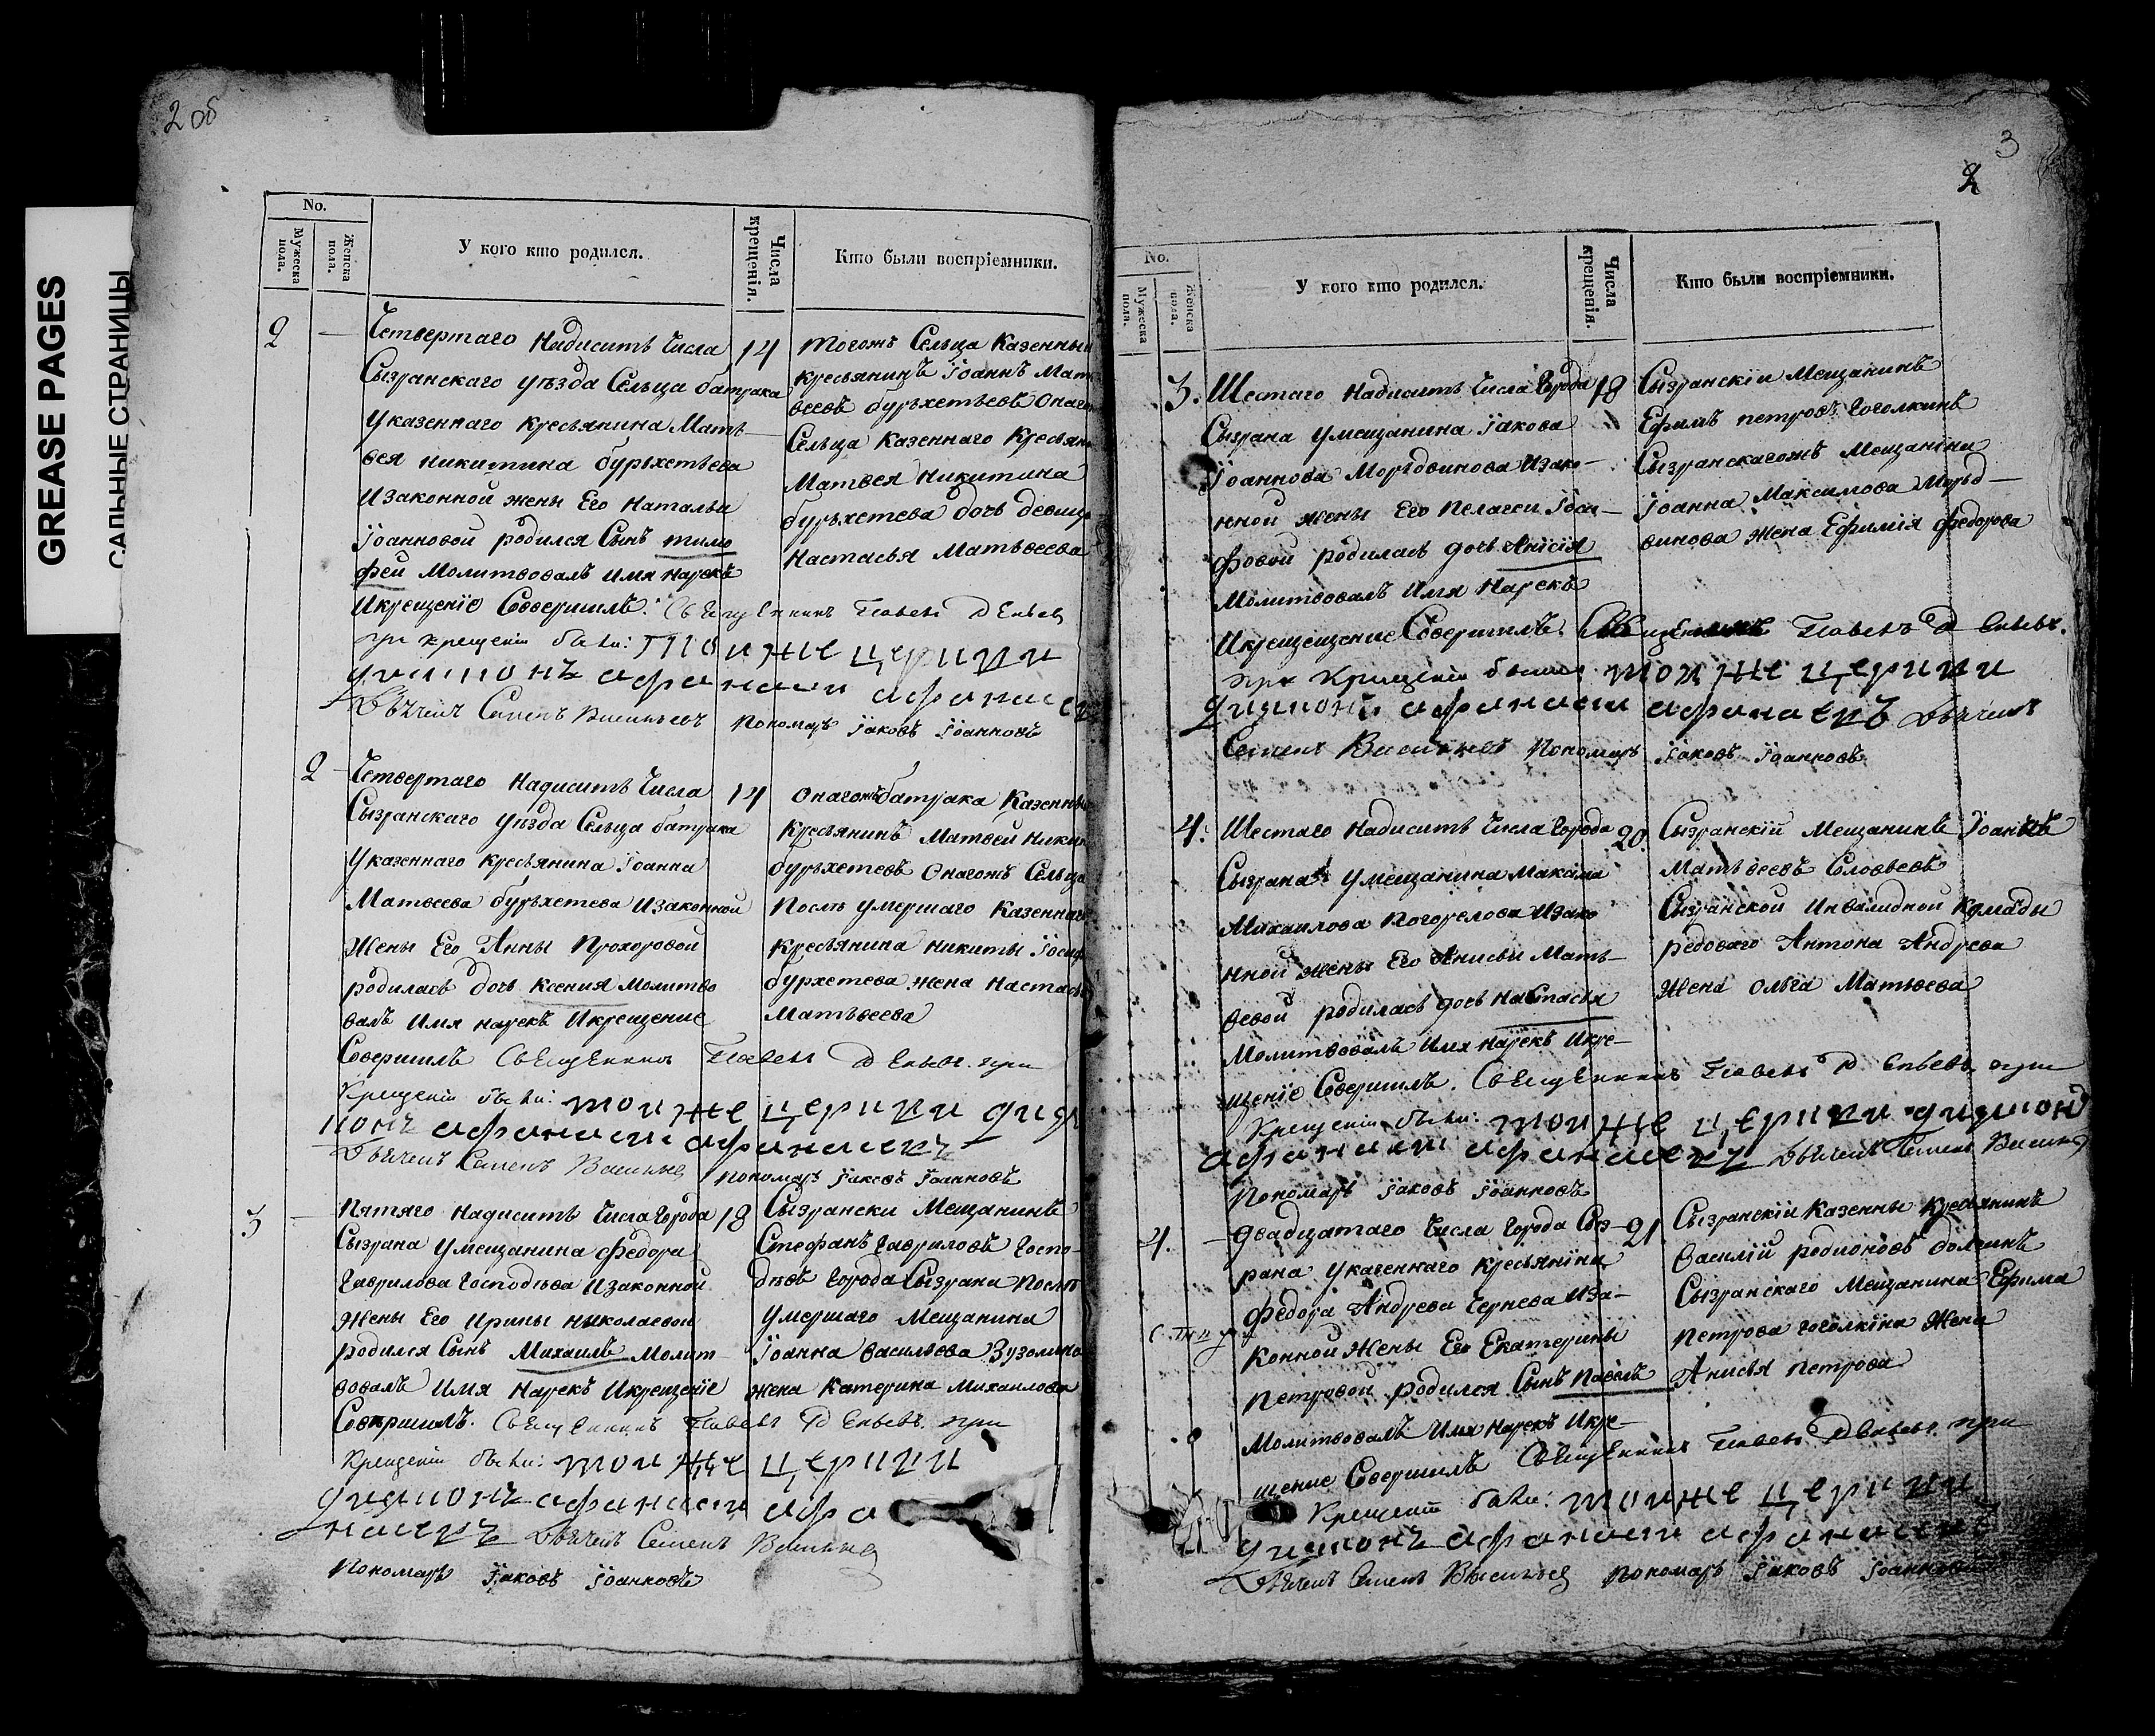 GREASE PAGES
САЛЬНЫЕ СТРАНИЦЫ
2 об
No.
Мужеска пола.
Женска пола.
У кого кто родился.
Числа крещенія.
Кто были воспріемники.
2 — Четвертаго Надисить Числа 14
Сызранскаго уѣзда Сельца батрака
Указеннаго Кресьянина Матъ—
вея Никитина буръхетъева
Изаконной жены Его Натальи
Іоанновой родился Сынъ тимо
фей Молитвовалъ имя Нарекъ
Икрещеніе Соверишлъ. Священникъ Павелъ
при крещеніи были: тои же церкви
диаконъ афанасий
Дьячекъ Семенъ Васильевъ Пономарь Іаковъ Іоанновъ
тогожъ Сельца Казенный
кресьянинъ Іоаннъ Мат
веевъ буръхетьевъ Онаго
Сельца Казеннаго Кресьян
Матвея Никитина
буръхетева дочь девица
Настасья Матьвеева
2 — Четвертаго Надисить Числа 14
Сызранскаго уѣзда Сельца батрака
Указеннаго Кресьянина Іоанна
Матвеева буръхетева Изаконной
Жены Его Анны Прохоровой
родилась дочь Ксения Молитво
валъ Имя нарекъ Икрещение
Соверишлъ Священникъ Павелъ при
Крещеніи были: тои же церкви диа
конъ афанасий афанасевъ
Дьячекъ Семенъ Пономарь Іаковъ Іоанновъ
Онагожъ батрака Казенны
Кресьянинъ Матвей Ники
буръхетевъ Онагожъ Сельца
Послѣ умершаго Казеннаго
Кресьянина Никиты Іоси
бурхетева жена Настась
Матьвеева
3 — Пятаго Надисить Числа Города 18
Сызрана умещанина Федора
Гаврилова Господѣва Изаконной
Жены Его Ирины Николаевой
родился Сынъ Михаилъ Молит—
вовалъ Имя Нарекъ Икрещеніе
Священникъ Павелъ при
Крещеніи были: тои же церкви
диаконъ афанасий афа
насевъ Дьячекъ Семенъ
Пономарь Іаковъ Іоанновъ
Сызрански Мещанинъ
Стефанъ Гавриловъ Госпо—
дѣвъ Города Сызрани Послѣ
Умершаго Мещанина
Іоанна Васильева
жена Катерина Михаилова
3
2
No.
Мужеска пола.
Женска пола.
У кого кто родился.
Числа крещенія.
Кто были воспріемники.
3. Шестаго Надисить Числа Города 18
Сызрана умещанина Іакова
Іоаннова Моръдвинова Изако—
нной жены Его Пелагеи Іоси—
фовой родилась дочь Анісія
Молитвовалъ Имя Нарекъ
Икрещещение Соверишлъ. Павелъ
при Крещеніи были тои же церкви
диаконъ афанасий афанасевъ Дьячекъ
Семенъ Пономарь Іаковъ Іоанновъ
Сызранскіи Мещанинъ
Ефимъ петровъ Гоголкинъ
Сызранскагожъ Мещаніни
Іоанна Максимова Моръд—
винова жена Ефимія Федорова
4. Шестаго Надисить Числа Города 20
Сызрана умещанина Максима
Михаилова Погорелова Изако
нной жены Его Анисьи Мать—
веевой родилась дочь Настасья
Молитвовалъ Имя Нарекъ Икре—
щеніе Соверишлъ. Священникъ Павелъ при
Крещеніи были: тои же церкви диаконъ
афанасий афанасевъ Дьячекъ Семенъ
Пономарь Іаковъ Іоанновъ
Сызранскій Мещанинъ Іоаннъ
Матьвеевъ Словьевъ
Сызранской Инвалидной Команды
редоваго Антона Андрева
Жена Ольга Матьвеева
4. — двадцатаго Числа Города Сыз— 21
рана укагеннаго Кресьяніна
Федора Андрева Чернева Иза—
Конной Жены Его Екатерины
Петровой родился Сынъ Павелъ
Молитвовалъ Имя Нарекъ Икре—
щение Совершилъ Священникъ Павелъ при
Крещеніи были: тои же церкви
диаконъ афанасий афанасевъ
Дьячекъ Семенъ Пономарь Іаковъ
Сызранскіи Казенны Кресьянинъ
Василій родионовъ
Сызранскаго Мещанина Ефима
Петрова Гоголкіна Жена
Анисья Петрова